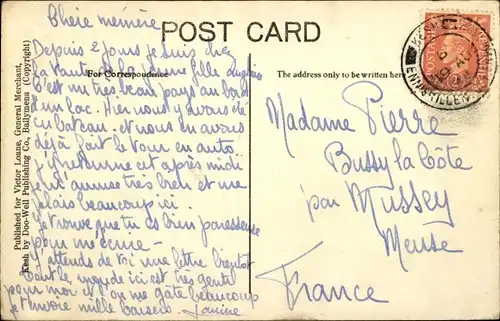 POST CARD
For Correspondence
The address only to be written here
Published for Victor Loane, General Merchant,
Kesh by Doo-Well Publishing Co., Ballymena (Copyright)
Chère mémère
Depuis 2 jours je suis chez
la tante de la jeune fille anglaise
C'est un très beau pays au bord
d'un lac. Hier nous y avons été
en bateau et nous en avons
déjà fait le tour en auto.
cet après midi
très bien et me
plais beaucoup ici.
Je trouve que tu es bien paresseuse
pour
J'attends de toi une lettre bientôt
Tout le monde ici est très gentil
pour moi et on me gâte beaucoup
Je t'envoie mille baisers. Janine
Madame Pierre
Bussy la Côte
par Mussey
Meuse
France
POSTAGE
ENNISKILLEN